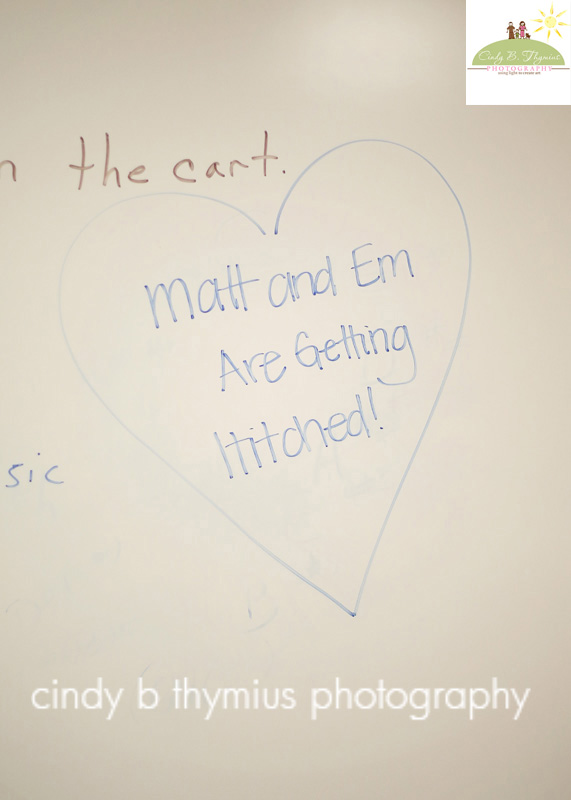 Cindy B. Thymius
PHOTOGRAPHY
using light to create art
n the cart.
Matt and Em
Are Getting
Hitched!
sic
cindy b thymius photography